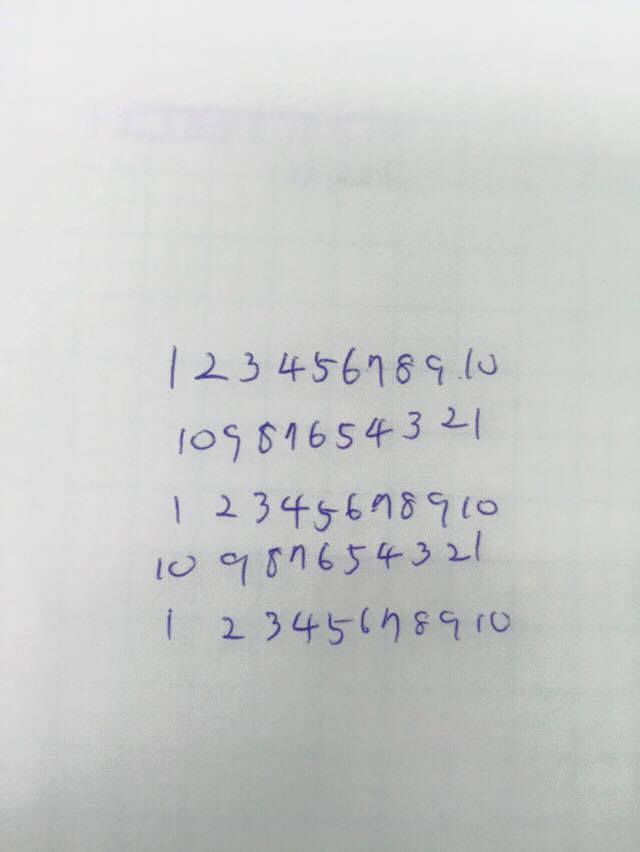 1 2 3 4 5 6 7 8 9 10
10 9 8 7 6 5 4 3 2 1
1 2 3 4 5 6 7 8 9 10
10 9 8 7 6 5 4 3 2 1
1 2 3 4 5 6 7 8 9 10